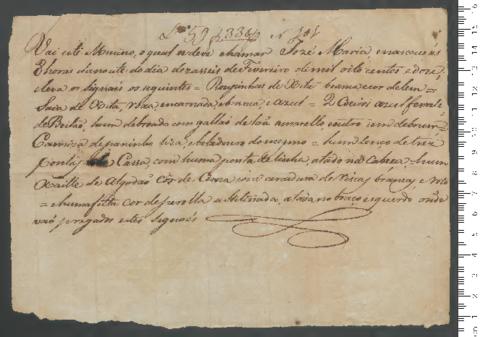 Lº 50 f 336 N 701
Vai este Menino, o qual se deve chamar José Maria, e nasceo as
8 horas da noute do dia dezasseis de Fevereiro de mil oito centos e doze,
leva os signais os seguintes = Roupinhas de Xita
Saia de Xita, roxa, encarnada, e branca, e azul = 2 Coeiros azues
de Baetão, hum debroado com gallão de lãa amarello e outro sem debrum
Camiza de paninho liza, e o do mesmo = hum lenço de tres
pontas de Cassa, com huma ponta de linha, atado na Cabeça, e hum
Xaille de Algodão Côr de Ganga com cercadura de riscas brancas, e
= e huma fitta cor de perolla a atada no braço esquerdo onde
vaõ pregados estes signaes